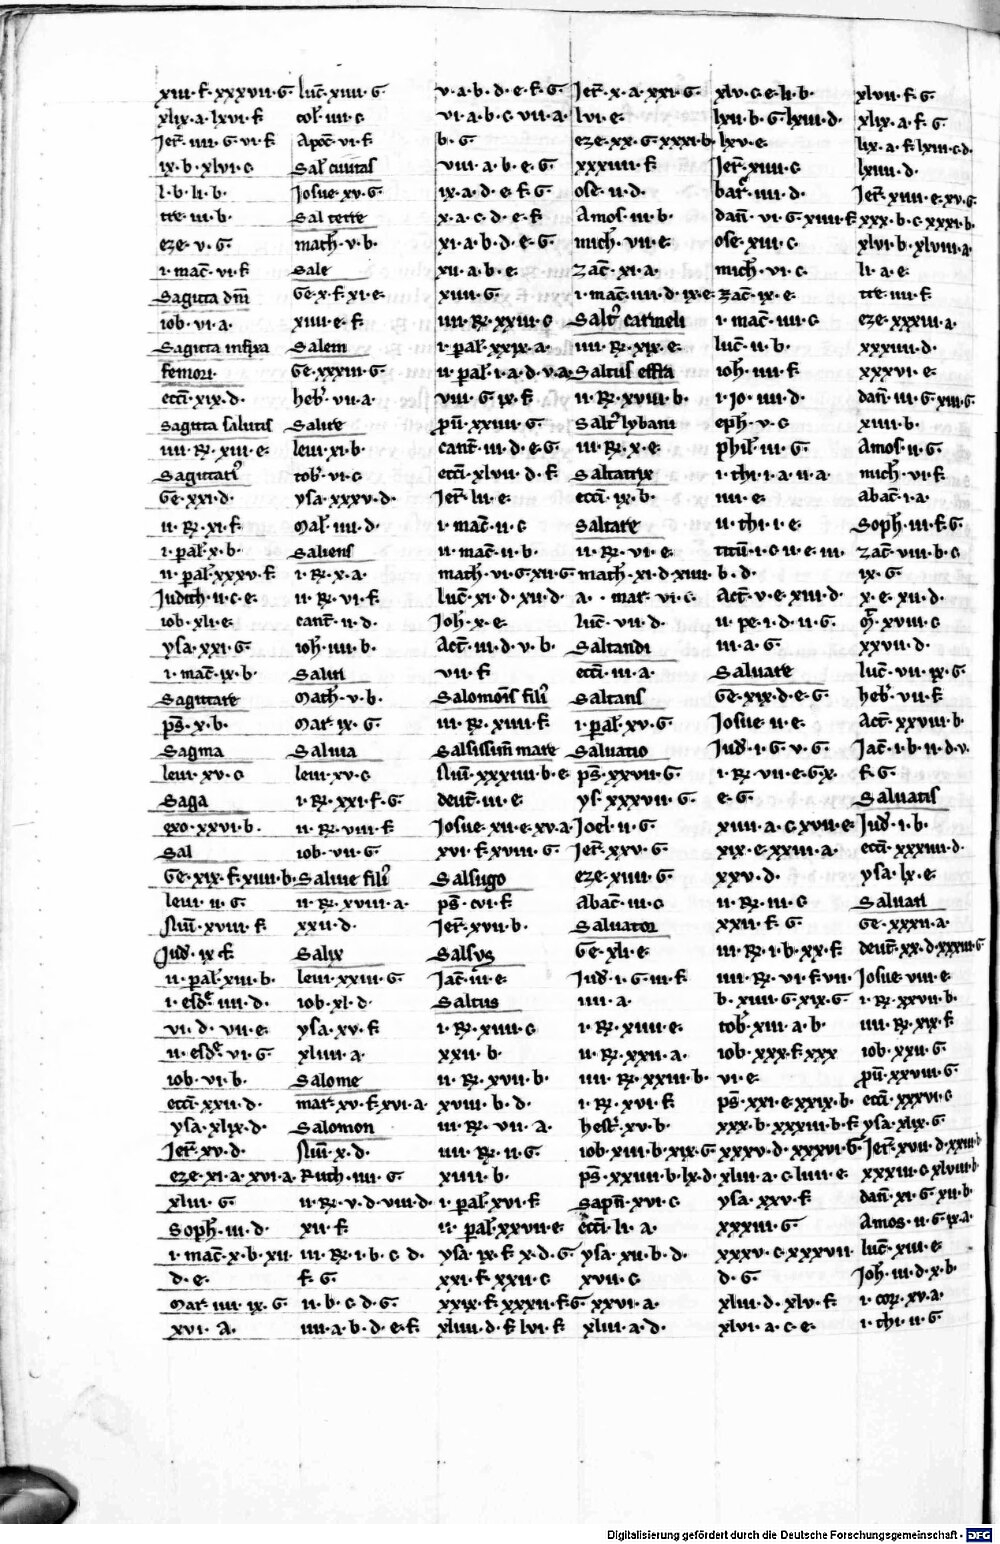 xiii·f·xxxvii·G
xlix·a·lxvi·f
Jer̄·iiii·G·vi·f
ix·b·xlvi·c
l·b·li·b·
tre·iii·b·
eze·v·G·
i·mac̄·vi·f
Sagitta dn̄i
iob·vi·a·
Sagitta infixa
femori·
ecc̄i·xix·d·
Sagitta salutis
iiii·R·xiii·e·
Sagittari᷒
Ge·xxi·d·
ii·R·xi·f
i·pal̄·x·b·
ii·pal̄·xxxv·f
Judith·ii·c·e·
iob·xli·e·
ysa·xxi·G
i·mac̄·ix·b·
Sagittare
ps̄·x·b·
Sagma
leui·xv·c
Saga
exo·xxvi·b·
Sal
Ge·xix·f·xiiii·b·
leui·ii·G·
Nūi·xviii·f
Jud̄·ix·f·
ii·pal̄·xiii·b·
i·esdr̄·iiii·d·
vi·d·vii·e·
ii·esdr̄·vi·G
iob·vi·b·
ecc̄i·xxii·d·
ysa·xlix·d·
Jer̄·xv·d·
eze·xi·a·xvi·a·
xliii·G
Soph̄·iii·d·
i·mac̄·x·b·xii
d·e·
Mar̄·iiii·ix·G
xvi·A·
luc̄·xiiii·G
col̄·iiii·c
Apoc̄·vi·f
Sal ciuitas
Josue·xv·G
Sal terre
math̄·v·b·
Sale
Ge·x·f·xi·e·
xiiii·e·f·
Salem
Ge·xxxiii·G
heb̄·vii·a·
Salire
leui·xi·b·
tob̄·vi·c
ysa·xxxv·d·
Mal̄·iiii·d·
Saliens
i·R·x·a·
ii·R·vi·f
cant̄·ii·d·
ioh̄·iiii·b·
Saliri
Math̄·v·b·
Mar·ix·G
Saliua
leui·xv·c
i·R·xxi·f·G
ii·R·viii·f
iob·vii·G·
Saliue fili᷒
ii·R·xviii·a·
xxii·d·
Salix
leui·xxiii·G
iob·xl·d·
ysa·xv·f
xliiii·a·
Salome
mar̄·xv·f·xvi·a·
Salomon
Nūi·x·d·
Ruth·iiii·G
ii·R·v·d·viii·d·
xii·f
iii·R·i·b·c·d·
f·G
ii·b·c·d·G·
iiii·a·b·d·e·f
v·a·b·d·e·f·G·
vi·a·b·c·vii·a·
b·G
viii·a·b·e·G
ix·a·d·e·f·G
x·a·c·d·e·f
xi·a·b·d·e·G
xii·a·b·e·
xiiii·G·
iiii·R·xxiii·c
i·pal̄·xxix·a·
ii·pal̄·i·a·d·v·a
viii·G·ix·f
pū·xxviii·G·
cant̄·iii·d·e·G
ecc̄i·xlvii·d·f
Jer̄·lii·e·
i·mac̄·ii·c
ii·mac̄·ii·b·
math·vi·G·xii·G
luc̄·xi·d·xii·d·
Joh̄·x·e·
Act̄·iii·d·v·b·
vii·f
Salomōis fili᷒
iii·R·xiiii·f
Salsissim̄ mare
Nūi·xxxiiii·b·e·
deut̄·iii·e·
Josue·xii·e·xv·a·
xvi·f·xviii·G
Salsugo
ps̄·cvi·f
Jer̄·xvii·b·
Salsus
Jac̄·iii·e·
Saltus
i·R·xiiii·c
xxii·b·
ii·R·xvii·b·
xviii·b·d·
iii·R·vii·A·
iiii·R·ii·G·
xiiii·b·
i·pal̄·xvi·f
ii·pal̄·xxvii·e
ysa·ix·f·x·d·G
xxi·f·xxii·c
xxix·f·xxxii·f·G·
xliiii·d·f·lvi·f
Jer̄·x·a·xxi·G
lvi·e·
eze·xx·G·xxxi·b·
xxxiiii·f·
ose·ii·d·
Amos·iii·b·
mich̄·vii·e·
zac̄·xi·a·
i·mac̄·iiii·d·ix·e·
Salt᷒ carmeli
iiii·R·xix·e·
Saltus effra
ii·R·xviii·b·
Salt᷒ lybani
iii·R·x·e·
Saltatrix
ecc̄i·ix·b·
Saltare
ii·R·vi·e·
math·xi·d·xiiii·
a··mar·vi·c·
luc̄·vii·d·
Saltandi
ecc̄i·iii·a·
Saltans
i·pal̄·xv·G·
Saluatio
ps̄·xxvii·G·
ys·xxxvii·G·
Joel·ii·G·
Jer̄·xxv·G·
eze·xiiii·G
Abac̄·iii·c
Saluator
Ge·xli·e·
Jud̄·i·G·iii·f
iiii·a·
i·R·xiiii·e·
ii·R·xxii·a·
iiii·R·xxiii·b·
i·R·xvi·f
hest̄·xv·b·
iob·xiii·b·xix·G
ps̄·xxiiii·b·lx·d·
sapn̄·xvi·c
ecc̄i·li·a·
ysa·xii·b·d·
xvii·c
xxvi·a·
xliii·a·d·
xlv·c·e·li·b·
lxii·b·G·lxiii·d·
lxv·e·
Jer̄·xiiii·c
bar̄·iiii·d·
dan̄·vi·G·xiiii·f
ose·xiii·c·
mich̄·vi·c
zac̄·ix·e·
i·mac̄·iiii·c
luc̄·ii·b·
ioh̄·iiii·f
i·Jo·iiii·d·
eph̄·v·c
phil̄·iii·G·
i·thi·i·a·ii·a·
iiii·e·
ii·thi·i·e·
titū·i·c·ii·e·iii·
b·d·
Act̄·v·e·xiii·d·
ii·pe·i·d·ii·G·
iii·a·G·
Saluare
Ge·xix·d·e·G
Josue·ii·e·
Jud̄·i·G·v·G·
i·R·vii·e·G·x·
e·G·
xiiii·a·c·xvii·e·
xix·e·xxiii·a·
xxv·d·
ii·R·iii·c
xxii·f·G·
iii·R·i·b·xx·f
iiii·R·vi·f·vii·
b·xiiii·G·xix·G·
tob̄·xiii·a·b·
iob·xxx·f·xxx
vi·e·
ps̄·xxi·e·xxix·b·
xxx·b·xxxiii·b·f·
xxxv·d·xxxvi·G
xliii·a·c·liiii·e
ysa·xxv·f
xxxiii·G
xxxv·c·xxxvii·
d·G·
xliii·d·xlv·f
xlvi·a·c·e·
xlvii·f·G
xlix·a·f·G
lix·a·f·lxiii·c·d·
lxiiii·d·
Jer̄·xiiii·e·xv·G·
xxx·b·c·xxxi·b·
xlvi·b·xlviii·a·
li·a·e·
tre·iiii·f
eze·xxxiii·a·
xxxiiii·d·
xxxvi·e·
dan̄·iii·G·xiii·G·
xiiii·b·
Amos·ii·G·
mich̄·vi·f
abac̄·i·a·
Soph̄·iii·f·G
zac̄·viii·b·c
ix·G·
x·e·xii·d·
xviii·c
xxvii·d·
luc̄·vii·ix·G
heb̄·vii·f
Act̄·xxviii·b·
Jac̄·i·b·ii·d·v·
f·G
Saluatis
Jud̄·i·b·
ecc̄i·xxxiiii·d·
ysa·lx·e·
Saluari
Ge·xxxii·a·
deut̄·xx·d·xxxiii·G
Josue·viii·e·
i·R·xxvii·b·
iiii·R·xix·f
iob·xxii·G
pū·xxviii·G
ecc̄i·xxxvi·c
ysa·xlix·G
Jer̄·xvii·d·xxiii·b
xxxiii·c·xlviii·b
dan̄·xi·G·xii·b·
Amos·ii·G·ix·a·
luc̄·xiii·e
Joh̄·iii·d·x·b·
i·cor̄·xv·a·
i·thi·ii·G
Digitalisierung gefördert durch die Deutsche Forschungsgemeinschaft - DFG